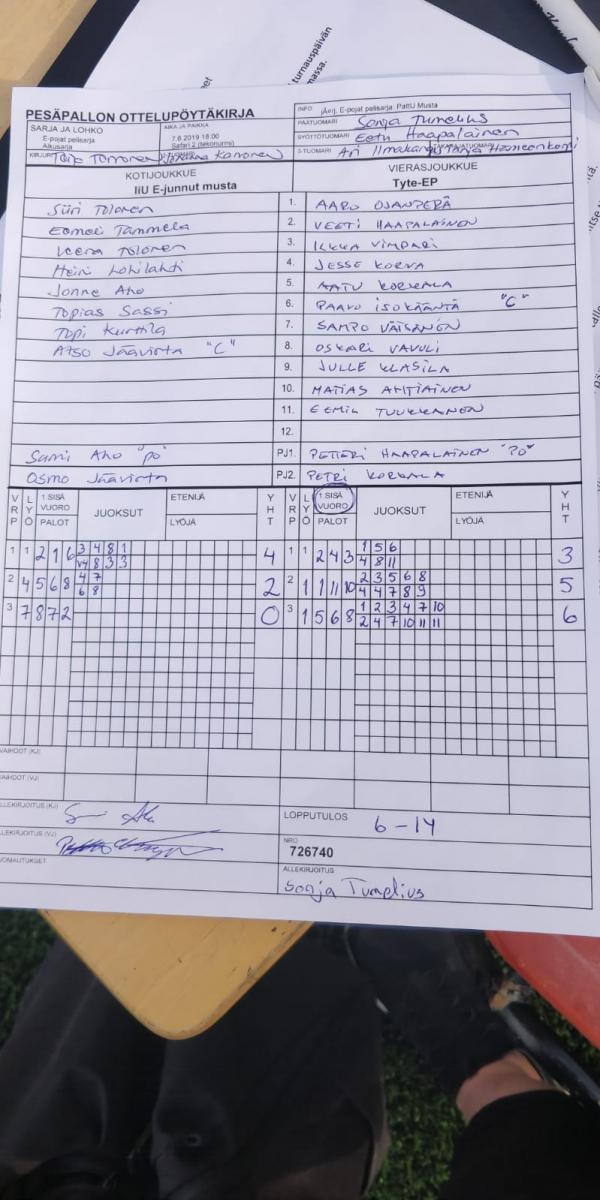 turnauspäivän
massa.
PESÄPALLON OTTELUPÖYTÄKIRJA
INFO E-pojat pelisarja: PattU Musta
SARJA JA LOHKO
E-pojat pelisarja
Alkusarja
AIKA JA PAIKKA
7.6.2019 18:00
Safari 2 (tekonurmi)
PÄÄTUOMARI Sonja Tumelius
SYÖTTÖTUOMARI Eetu Haapalainen
KIRJURI Kanonen
3-TUOMARI Ari
KOTIJOUKKUE
IiU E-junnut musta
VIERASJOUKKUE
Tyte-EP
Siiri Tolonen
1. AARO OJANPERÄ
Eemeli Tammela
2. VEETI HAAPALAINEN
Veera Tolonen
3. IKKKA VIMPARI
Heini Lohilahti
4. JESSE KORVA
Jonne Aho
5. AATU KORKALA
Topias Sassi
6. PAAVO ISOKÄÄNTÄ "C"
Topi Kurttila
7. SAMPO VÄISÄNEN
Atso Jäävirta "C"
8. OSKARI VAVULI
9. JULLE KLASILA
10. MATIAS AHTIAINEN
11. EEMIL TUUKKANEN
12.
Sami Aho "PO"
PJ1. PETTERI HAAPALAINEN "PO"
Osmo Jäävirta
PJ2. PETRI KORKALA
VRP LYÖ 1 SISÄ VUORO PALOT JUOKSUT ETENIJÄ LYÖJÄ YHT VRP LYÖ 1 SISÄ VUORO PALOT JUOKSUT ETENIJÄ LYÖJÄ YHT
1 1 2 1 6 3 4 8 1 4 1 1 2 4 3 1 5 6 3
8 3 3 4 8 11
2 4 5 6 8 4 7 2 2 1 1 11 10 2 3 5 6 8 5
6 8 4 4 7 8 9
3 7 8 7 2 0 3 1 5 6 8 1 2 3 4 7 10 6
2 4 7 10 11 11
VAIHDOT (KJ)
VAIHDOT (VJ)
ALLEKIRJOITUS (KJ)
LOPPUTULOS 6-14
ALLEKIRJOITUS (VJ)
NRO
726740
HUOMAUTUKSET
ALLEKIRJOITUS
Sonja Tumelius